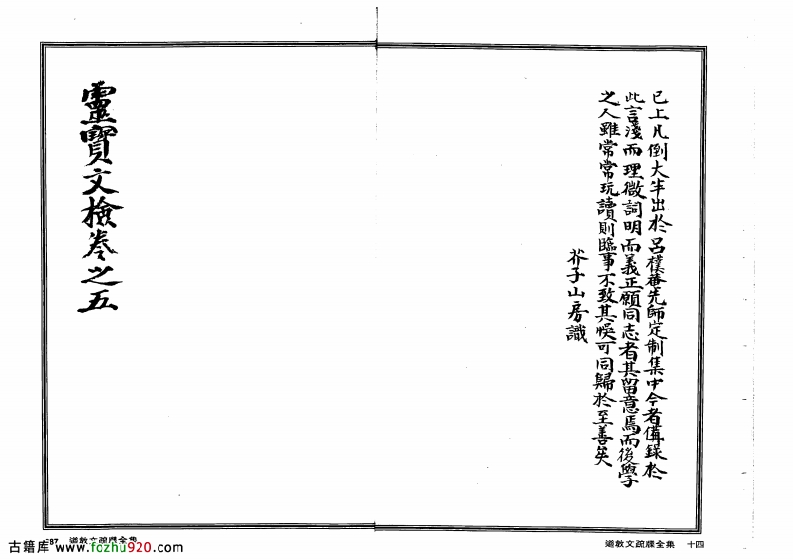 已上凡倒大半出於呂樸菴先師定制集中今者備錄於
此言淺而理微詞明而義正願同志者其留意焉而後學
之人雖常常玩讀則臨事不致其悞可同歸於至善矣
芥子山房識
道教文疏牒全集 十四
靈寶文檢卷之五
587 道教文疏牒全集
古籍库 www.fozhu920.com